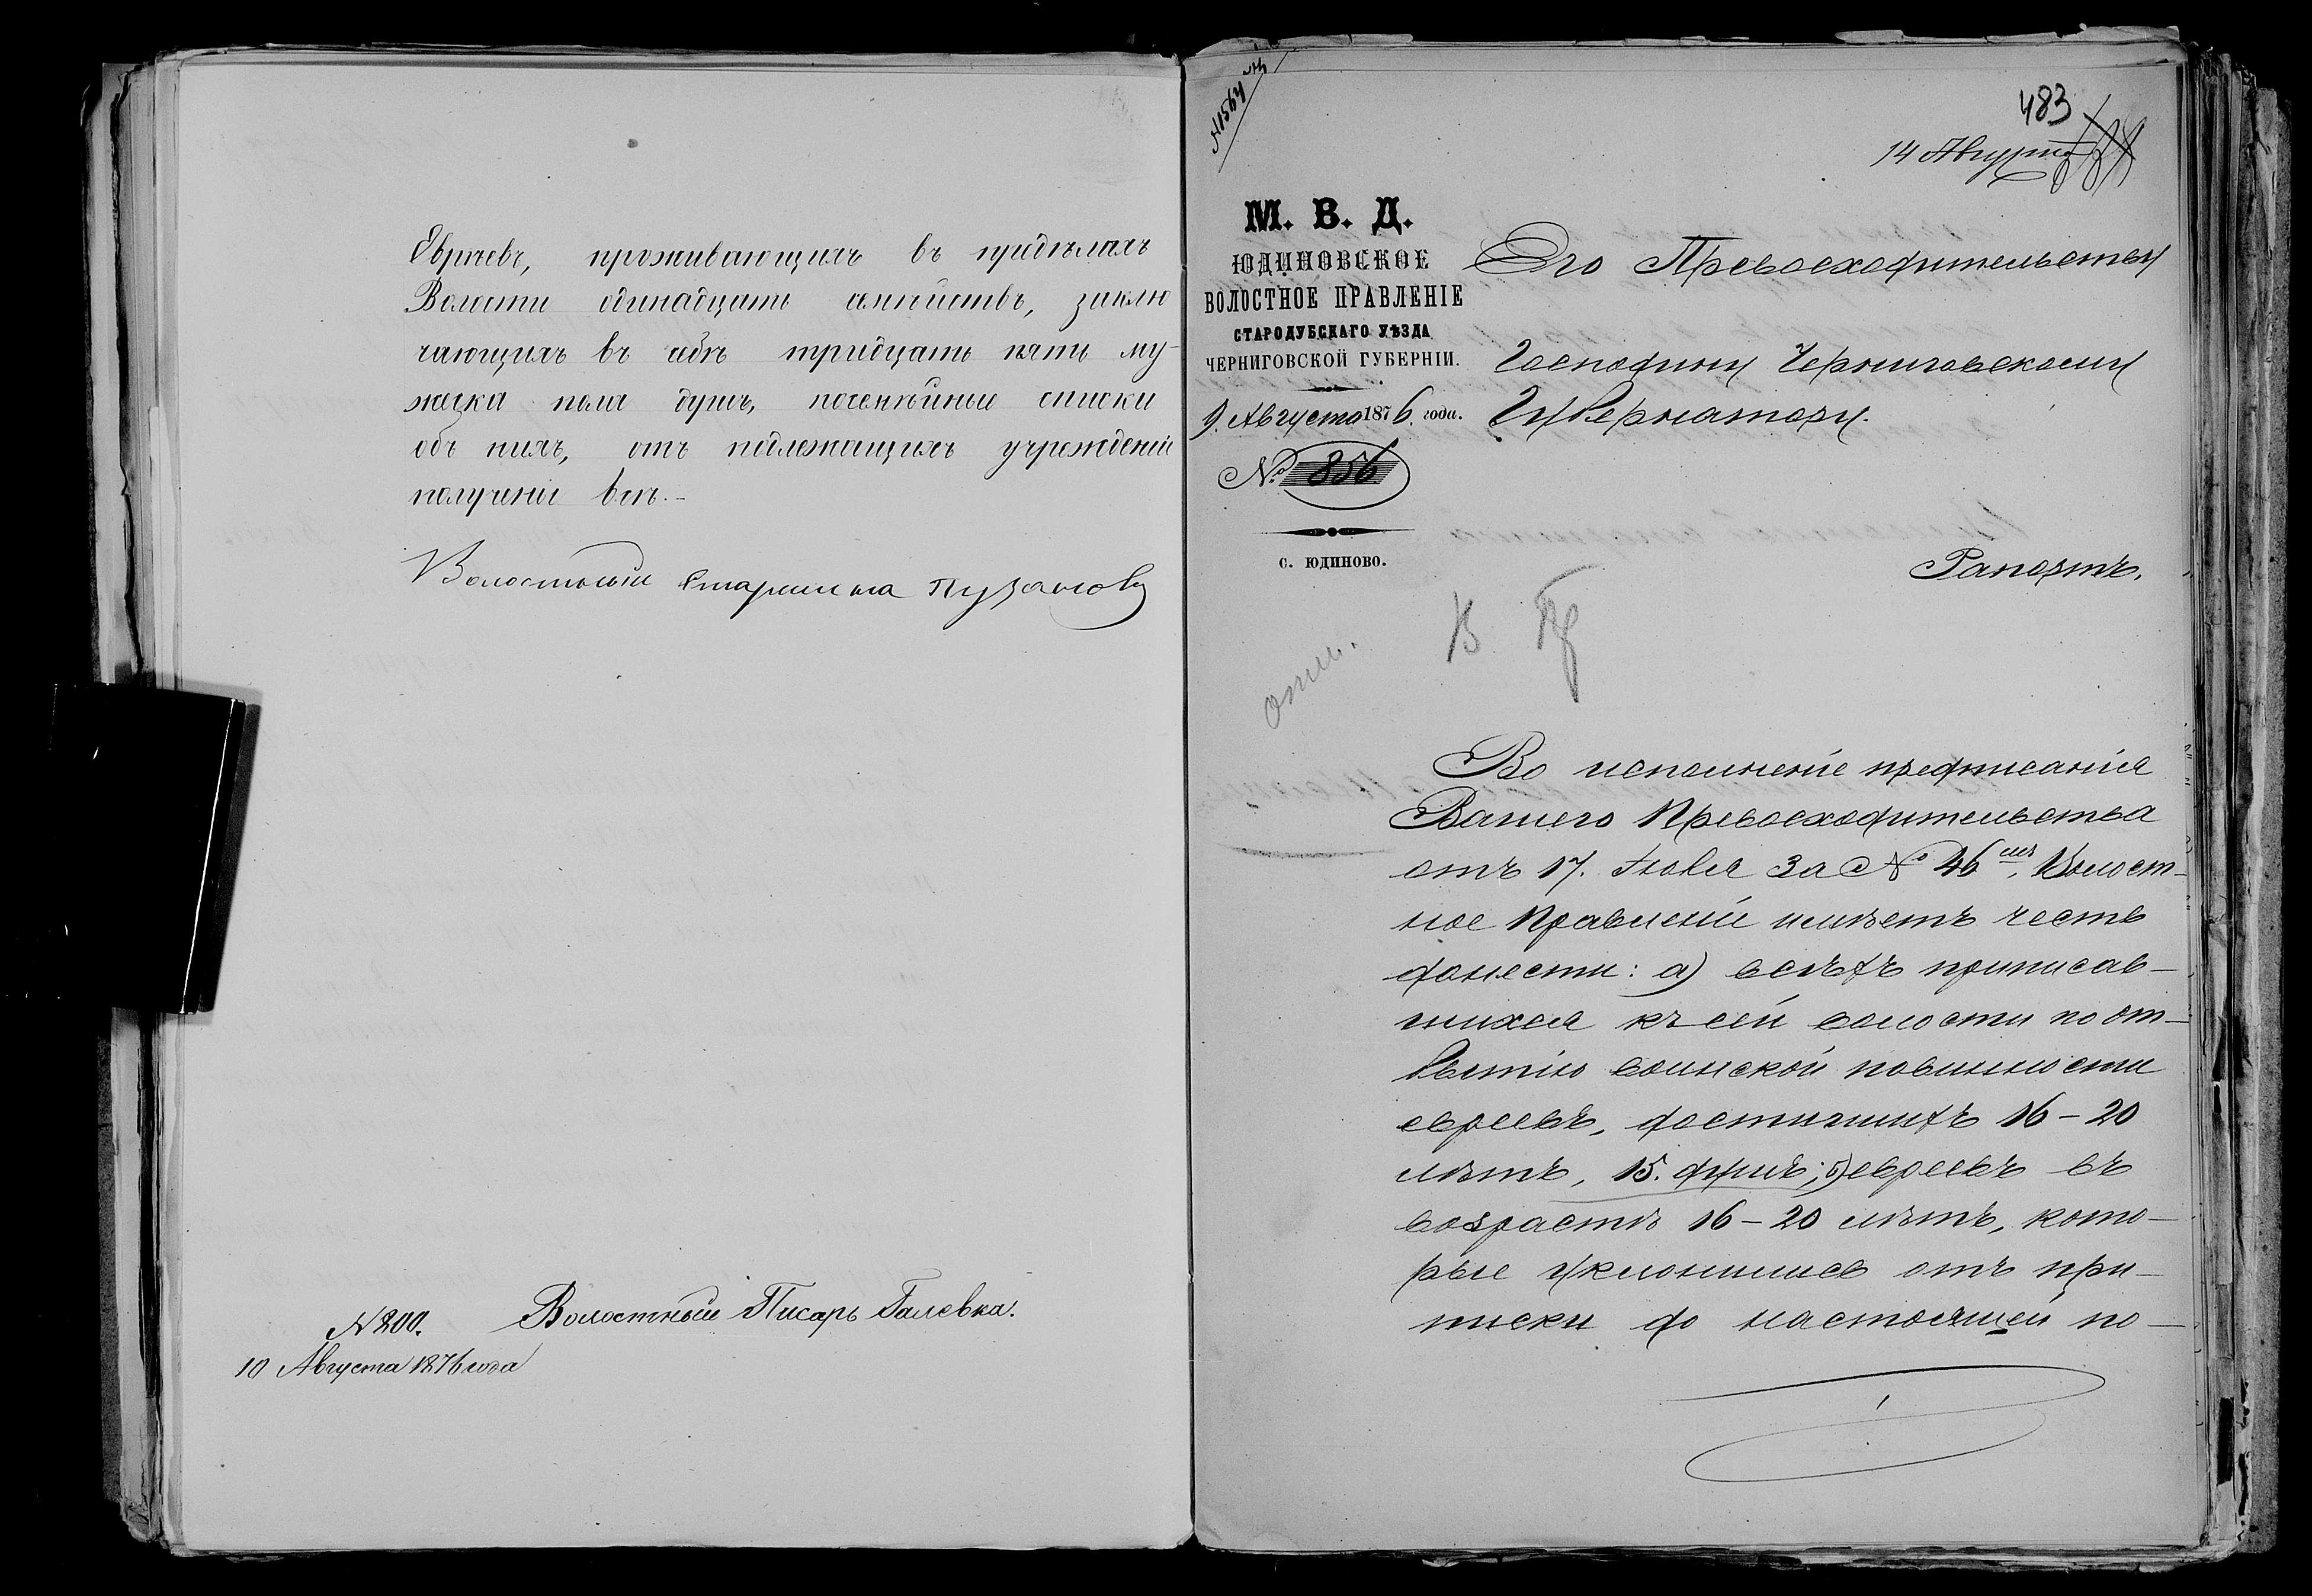 Евреевъ, проживающихъ въ предѣлахъ
Волости одинадцать семействъ, заклю
чающихъ въ себѣ тридцать пять му-
жеска пола душъ, посемѣйныи списки
объ нихъ, отъ подлежащихъ учрежденій
получены всѣ.-
Волостный Старшина Пузановъ
Волостный Писарь Галевка.
N 200.
10 Августа 1876 года
483
14 Августа
М. В. Д.
ЮДИНОВСКОЕ
ВОЛОСТНОЕ ПРАВЛЕНІЕ
СТАРОДУБСКАГО УѢЗДА
ЧЕРНИГОВСКОЙ ГУБЕРНІИ.
9. Августа 1876. года.
№ 856
С. ЮДИНОВО.
Его Превосходительству
Господину Черниговскому
Губернатору.
Рапортъ.
Во исполненіе предписанія
Вашего Превосходительства
отъ 17. Іюля за № 46, Волост-
ное Правленіе имѣетъ честь
донести: а) всѣхъ приписав-
шихся къ сей волости по от-
бытію воинской повинности
евреевъ, достигшихъ 16-20
лѣтъ, 15. душъ; б) евреевъ въ
возрастѣ 16-20 лѣтъ, кото-
рые уклонились отъ при-
писки до настоящей по-